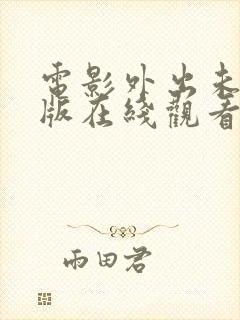 電影外出未
版在綫觀看
雨田君